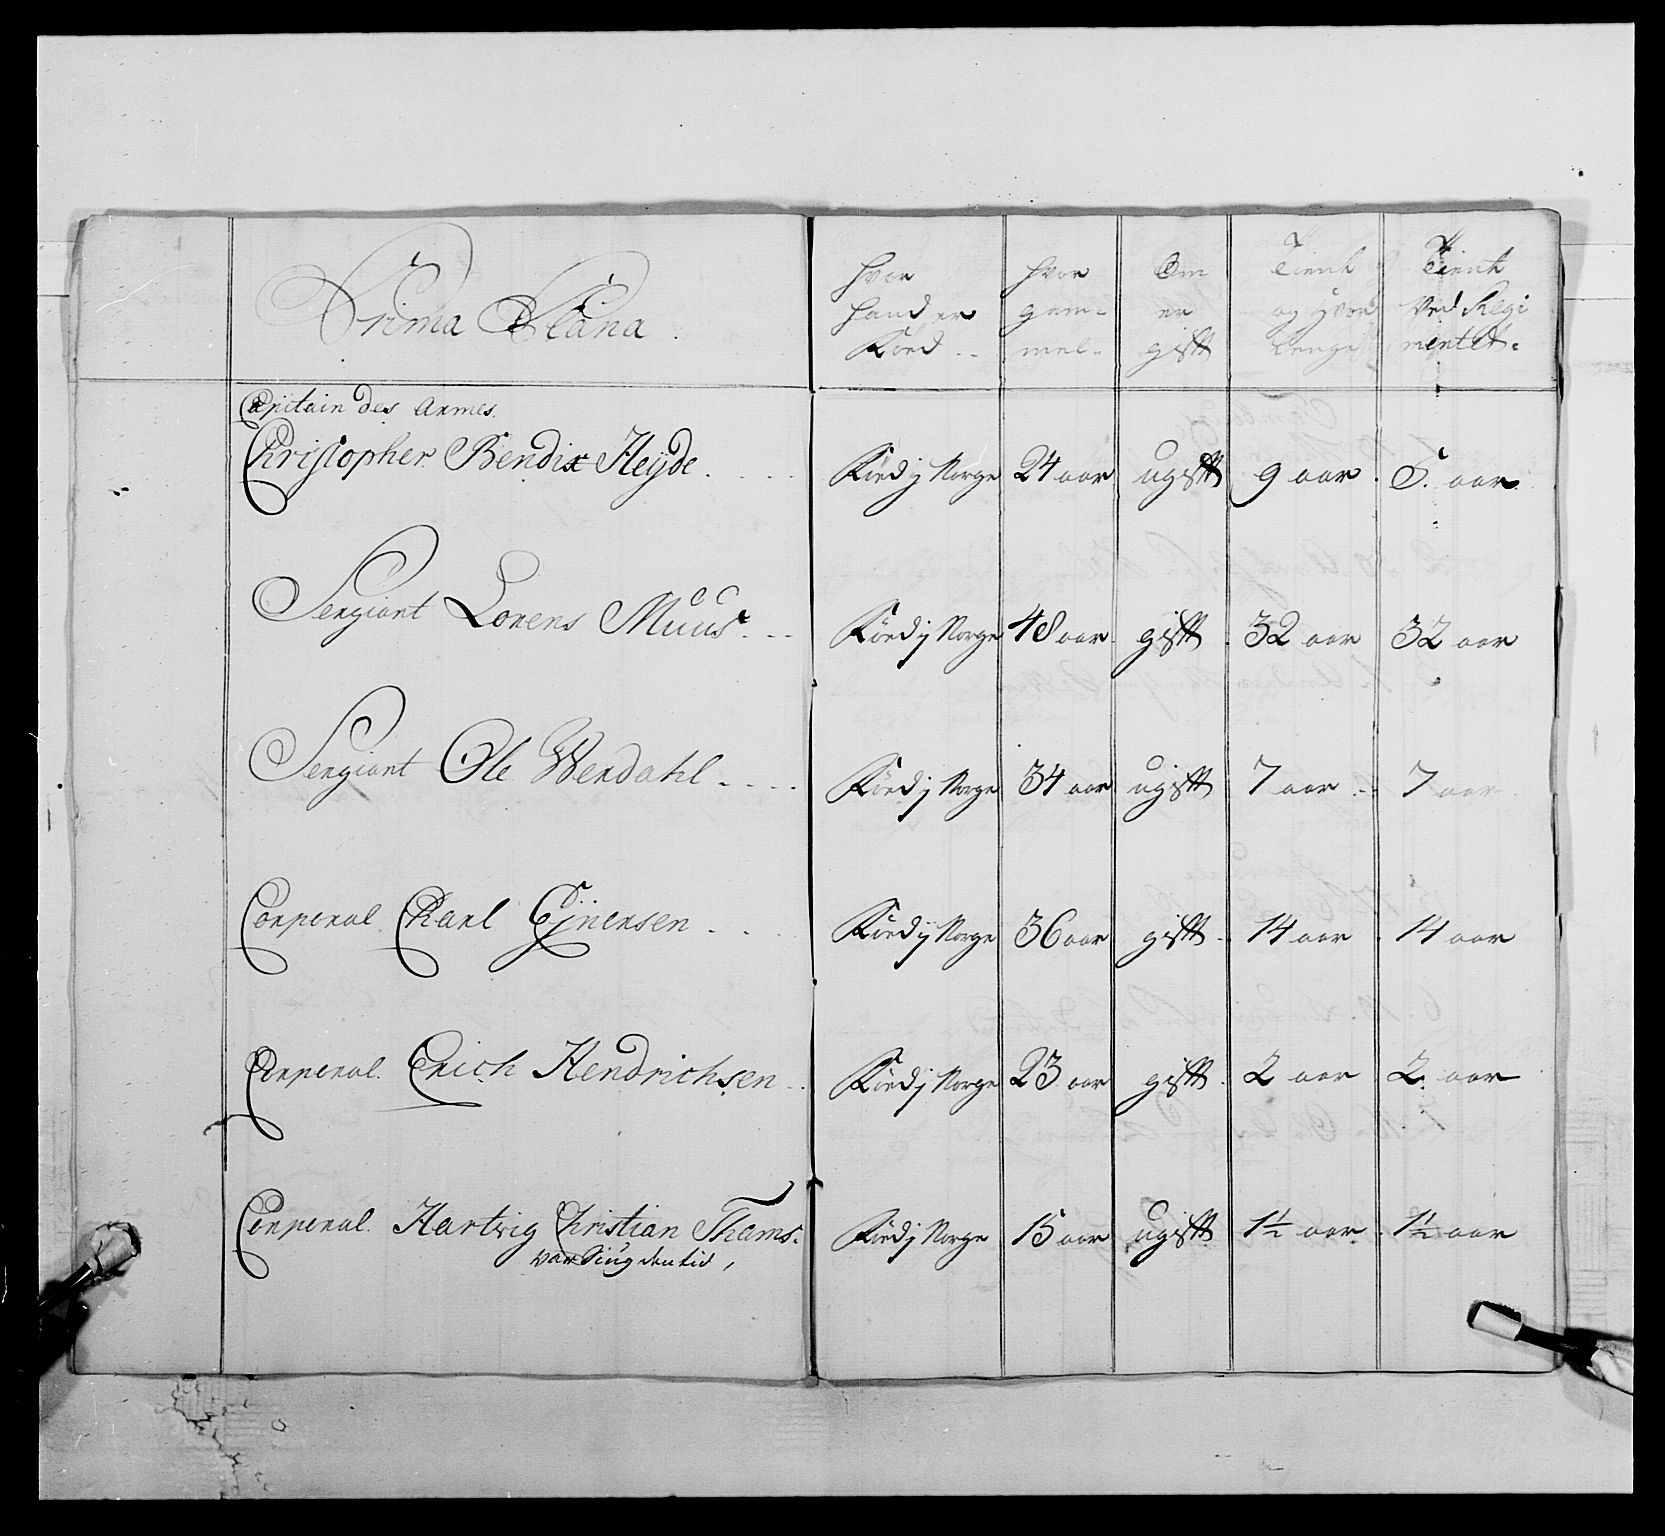 Prima Plana.
Hvor hand er Föed..
Hvor gam= mel..
Om er gift
Tient og Hvor lenge
Tient Ved Regi mentet.
Capitain des Armes.
Christopher Bendix Heyde. Föed j Norge 24 aar ugift 9 aar. 5. aar.
Sergiant Lorens Muus... Föed j Norge 48 aar. gift. 32 aar 32 aar
Sergiant Ole Werdahl.... Föed j Norge 34 aar ugift 7 aar.. 7 aar.
Corporal Carl Ejnersen... Föed j Norge 36 aar gift. 14 aar. 14 aar
Corporal. Erich Hendrichsen.. Föed j Norge 23 aar gift. 2 aar 2. aar
Corporal. Hartvig Christian Thams. Föed j Norge 15 aar ugift 1½ aar. 1½ aar
var Siug den tid,